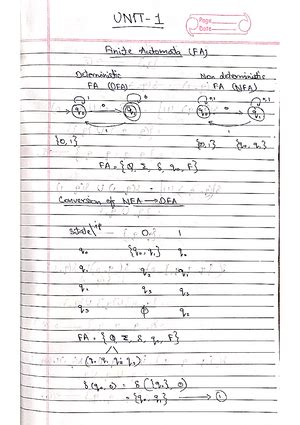 UNIT-1
Page
Date
Finite Automata (FA)
Deterministic Non deterministic
FA (DFA) FA (NFA)
{0,1} {0,1} {q₀, q₁}
FA = {Q, Σ, δ, q₀, F}
Conversion of NFA → DFA
State i/p 0 1
q₀ {q₀, q₁} q₀
q₁ q₂ q₁
q₂ q₃ q₃
q₃ ϕ q₂
FA = {Q, Σ, δ, q₀, F}
δ(q₀, 0) = δ({q₀}, 0)
= {q₀, q₁} → ①